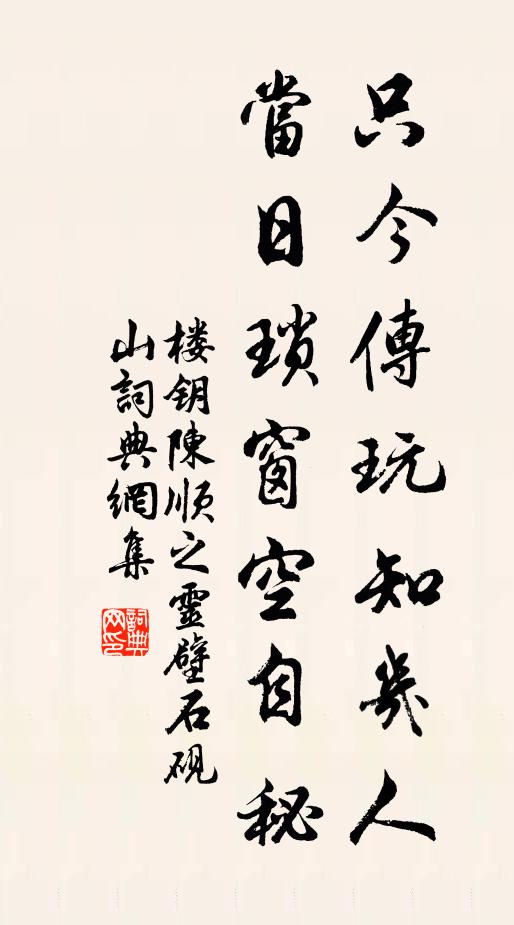 只今傳玩知幾人
當日瑣窗空自秘
楼钥陳順之靈璧石硯
山詞典網集
詞典
网印